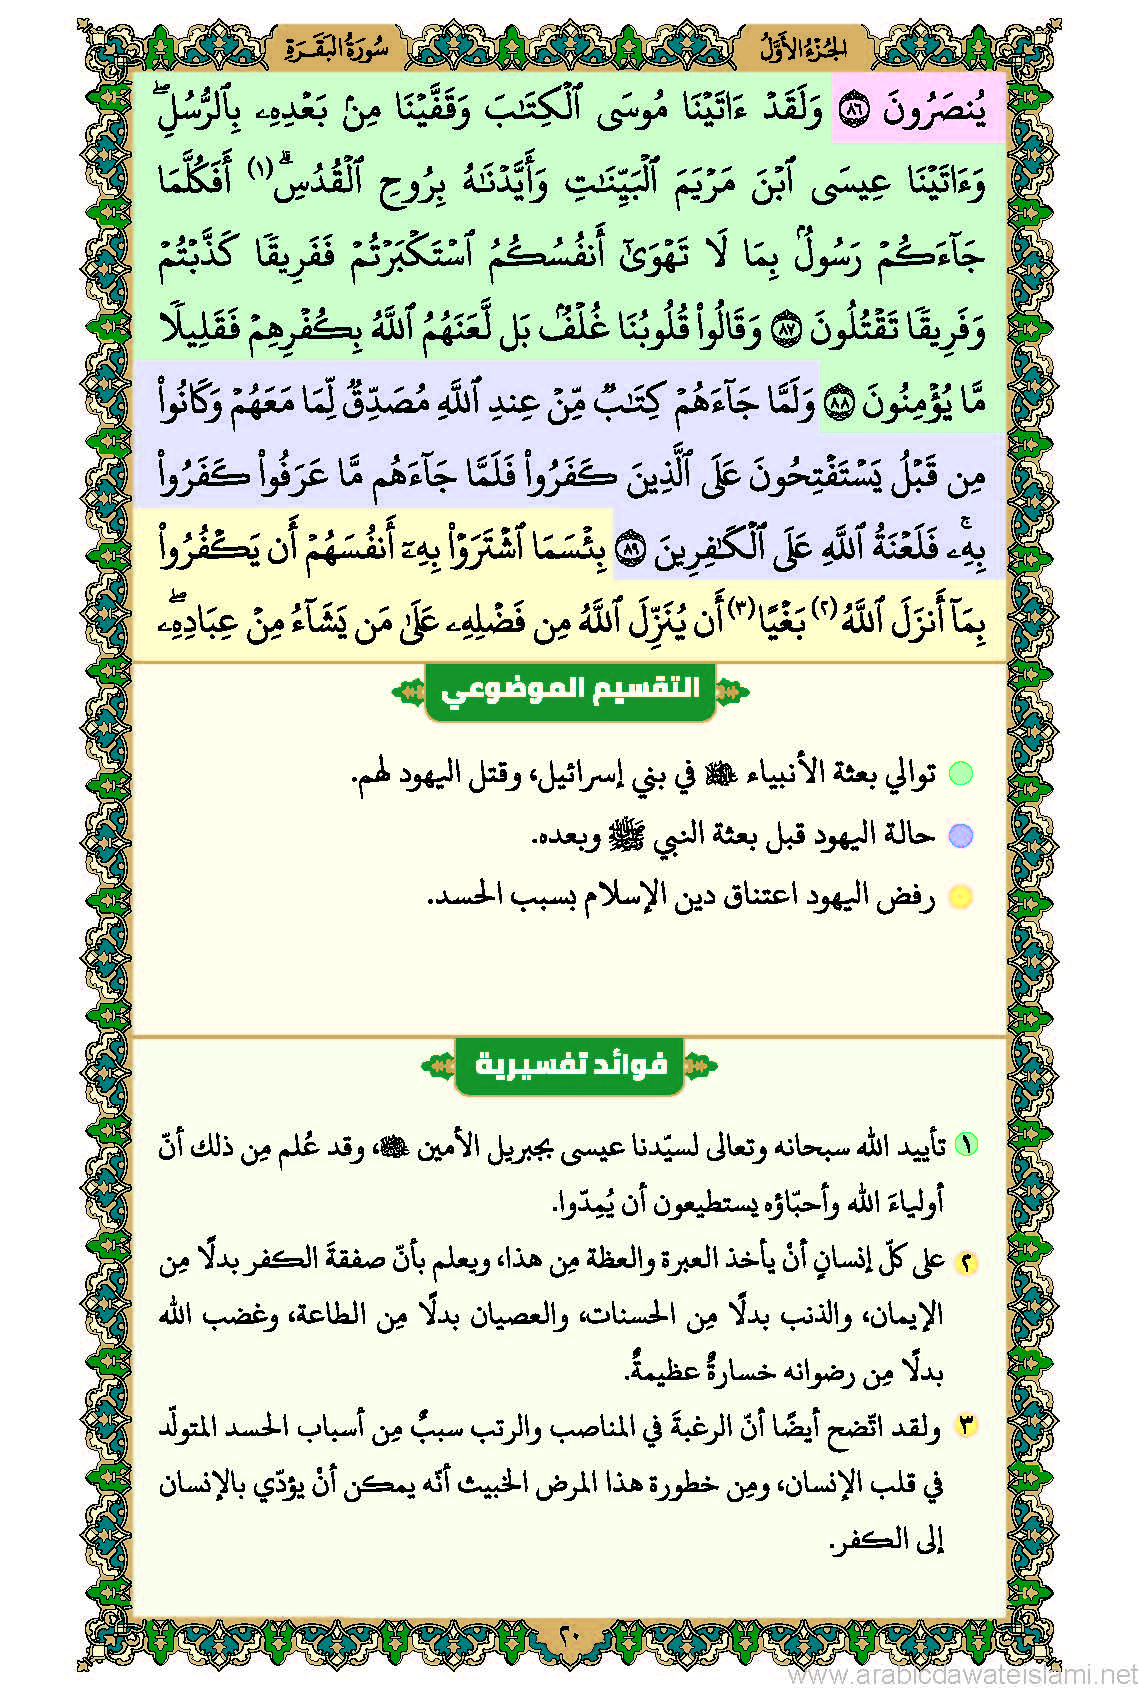 الجُزْءُ الأَوَّلُ
سُورَةُ البَقَرَةِ
يُنصَرُونَ ٨٦ وَلَقَدْ ءَاتَيْنَا مُوسَى ٱلْكِتَٰبَ وَقَفَّيْنَا مِنۢ بَعْدِهِۦ بِٱلرُّسُلِۖ
وَءَاتَيْنَا عِيسَى ٱبْنَ مَرْيَمَ ٱلْبَيِّنَٰتِ وَأَيَّدْنَٰهُ بِرُوحِ ٱلْقُدُسِۗ (١) أَفَكُلَّمَا
جَآءَكُمْ رَسُولُۢ بِمَا لَا تَهْوَىٰٓ أَنفُسُكُمُ ٱسْتَكْبَرْتُمْ فَفَرِيقًا كَذَّبْتُمْ
وَفَرِيقًا تَقْتُلُونَ ٨٧ وَقَالُوا۟ قُلُوبُنَا غُلْفٌۢ بَل لَّعَنَهُمُ ٱللَّهُ بِكُفْرِهِمْ فَقَلِيلًا
مَّا يُؤْمِنُونَ ٨٨ وَلَمَّا جَآءَهُمْ كِتَٰبٌ مِّنْ عِندِ ٱللَّهِ مُصَدِّقٌ لِّمَا مَعَهُمْ وَكَانُوا۟
مِن قَبْلُ يَسْتَفْتِحُونَ عَلَى ٱلَّذِينَ كَفَرُوا۟ فَلَمَّا جَآءَهُم مَّا عَرَفُوا۟ كَفَرُوا۟
بِهِۦۚ فَلَعْنَةُ ٱللَّهِ عَلَى ٱلْكَٰفِرِينَ ٨٩ بِئْسَمَا ٱشْتَرَوْا۟ بِهِۦٓ أَنفُسَهُمْ أَن يَكْفُرُوا۟
بِمَآ أَنزَلَ ٱللَّهُ (٢) بَغْيًا (٣) أَن يُنَزِّلَ ٱللَّهُ مِن فَضْلِهِۦ عَلَىٰ مَن يَشَآءُ مِنْ عِبَادِهِۦۖ
التقسيم الموضوعي
توالي بعثة الأنبياء في بني إسرائيل، وقتل اليهود لهم.
حالة اليهود قبل بعثة النبي ﷺ وبعده.
رفض اليهود اعتناق دين الإسلام بسبب الحسد.
فوائد تفسيرية
١ تأييد الله سبحانه وتعالى لسيّدنا عيسى بجبريل الأمين ، وقد عُلم مِن ذلك أنّ
أولياءَ الله وأحبّاؤه يستطيعون أن يُمِدّوا.
٢ على كلّ إنسانٍ أنْ يأخذ العبرة والعظة مِن هذا، ويعلم بأنّ صفقةَ الكفر بدلًا مِن
الإيمان، والذنب بدلًا مِن الحسنات، والعصيان بدلًا مِن الطاعة، وغضب الله
بدلًا مِن رضوانه خسارةٌ عظيمةٌ.
٣ ولقد اتّضح أيضًا أنّ الرغبةَ في المناصب والرتب سببٌ مِن أسباب الحسد المتولّد
في قلب الإنسان، ومِن خطورة هذا المرض الخبيث أنّه يمكن أنْ يؤدّي بالإنسان
إلى الكفر.
٢٠
www.arabicdawateislami.net